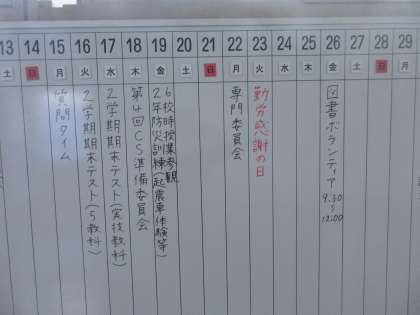 13 14 15 16 17 18 19 20 21 22 23 24 25 26 27 28 29
土 日 月 火 水 木 金 土 日 月 火 水 木 金 土 日 月
質問タイム
2学期期末テスト(5教科)
2学期期末テスト(実技教科)
第4回CS準備委員会
6校時授業参観
2年防災訓練(起震車体験等)
専門委員会
勤労感謝の日
図書ボランティア 9:30~12:00